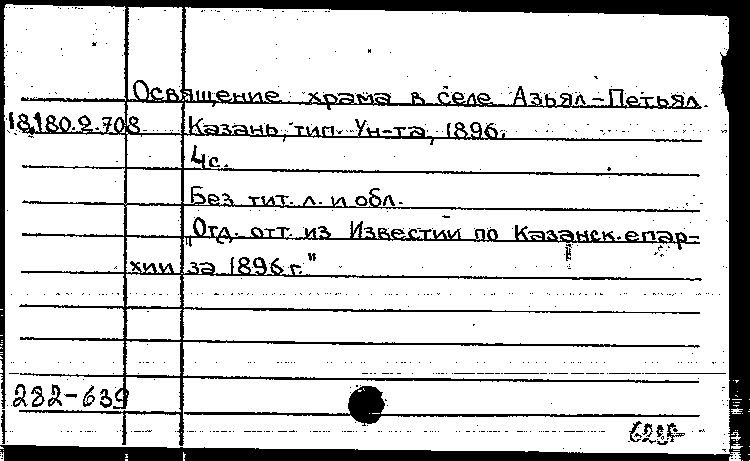 Освящение храма в селе Азьял-Петьял.
18.180.2.708 Казань, тип. Ун-та, 1896.
4с.
Без тит. л. и обл.
"Отд. отт. из Известий по Казанск. епар-
хии за 1896 г."
282-639